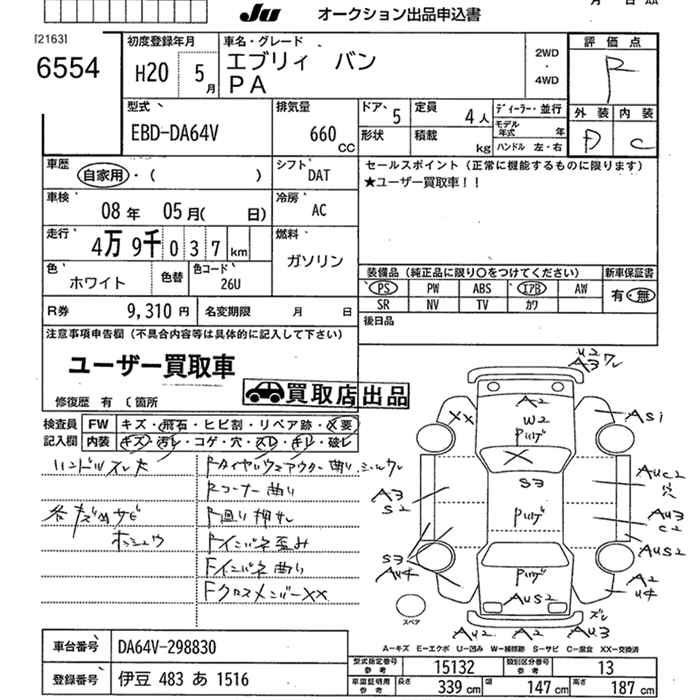 JU オークション出品申込書
月 日 AA
[2163]
6554
初度登録年月
H20 5月
車名・グレード
エブリィ バン
PA
2WD
・
4WD
評価点
R
型式
EBD-DA64V
排気量
660 CC
ドア 5
定員 4人
形状
積載 kg
ディーラー・並行
モデル年式 年
ハンドル 左・右
外装 内装
D C
車歴
自家用・( )
シフト
DAT
セールスポイント(正常に機能するものに限ります)
★ユーザー買取車!!
車検
08年 05月( 日)
冷房
AC
走行
4万 9千 0 3 7 km
燃料
ガソリン
色
ホワイト
色替
色コード
26U
装備品(純正品に限り○をつけてください)
新車保証書
PS PW ABS エアB AW
有・無
SR NV TV カワ
R券 9,310円
名変期限 月 日
後日品
注意事項申告欄(不具合内容等は具体的に記入して下さい)
ユーザー買取車
買取店出品
修復歴 有 〔箇所
検査員
記入欄
FW キズ・飛石・ヒビ割・リペア跡・×要
内装 キズ・汚レ・コゲ・穴・スレ・キレ・破レ
ハンドルスレ大
各キズ凹サビ
ホシュウ
Rコーナー曲り
F廻り押サレ
Fインパネ歪み
Fインパネ曲り
FクロスメンバーXX
U2
A3 ワレ
A2
XX
W2
アリゲ
X
AS1
S3
A3
S2
AUC2
穴
アリゲ
AU3
C2
AUS2
S3
AU4
アリゲ
A2
U4
AUS2
スペア
ズレ
AU2 A2 AU3
A-キズ E-エクボ U-凹み W-補修跡 S-サビ C-腐食 XX-交換済
車台番号 DA64V-298830
登録番号 伊豆 483 あ 1516
型式指定番号 参考 15132
類別区分番号 参考 13
車庫証明用 参考 長さ 339cm 幅 147cm 高さ 187cm